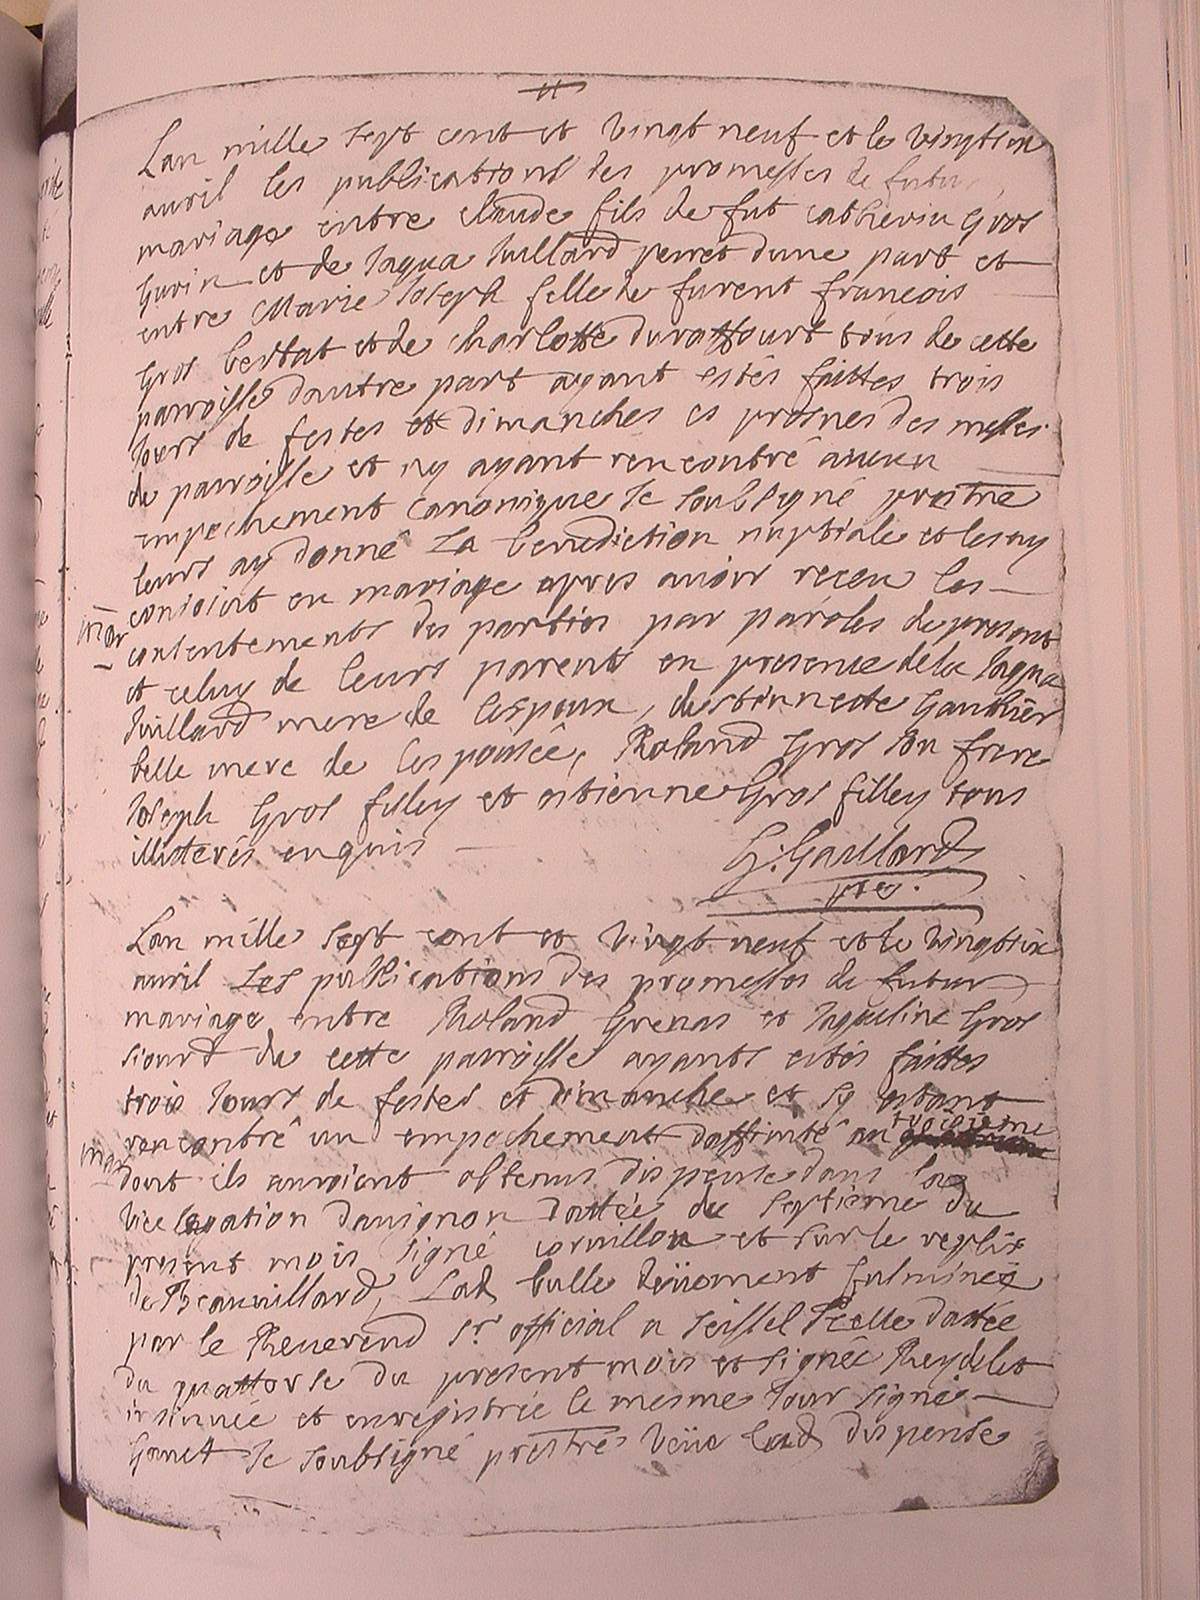 Lan mille sept cent et vingt neuf et le vingtsix
auril les publications des promesses de futur
mariage entre claude fils de fut catherin Gros
Gurin et de Jaqua Juillard perret dune part et
entre Marie Joseph fille de furent francois
Gros bertat et de charlotte duraffourt tous de cette
parroisse dautre part ayant estés faittes trois
Jours de festes et dimanches es prosnes des messes
de parroisse et ny ayant rencontré aucun
empechement canonique Je soubsigné prestre
leurs ay donné La benediction nuptiale et les ay
conioint en mariage apres auoir receu les
mar
consentements des parties par paroles de present
et celuy de leurs parents en presence de la Jaqua
Juillard mere de lespoux, Gauthier
belle mere de lespousée, Roland Gros son frere
Joseph Gros filley et estienne Gros filley tous
illiterés enquis
G: Gaillard
ptre.
Lan mille sept cent et vingt neuf et le vingtsix
auril Les publications des promesses de futur
mariage entre Roland Grenas et Jaqueline Gros
siourd de cette parroisse ayants estés faittes
trois Jours de festes et dimanche et sy estant
rencontré un empechement daffinité au troisieme
mar
dont ils auroient obtenus dispense dans la
vice legation dauignon dattée du septieme du
present mois signé et sur le replix
de Beauuillard, Lad bulle deüement fulminée
par le Reuerend Sr official a Seissel Icelle dattée
du quattorse du present mois et signée Reydelet
insinuée et enregistrée le mesme Jour signé
Ganet Je soubsigné prestre veüe lad dispense